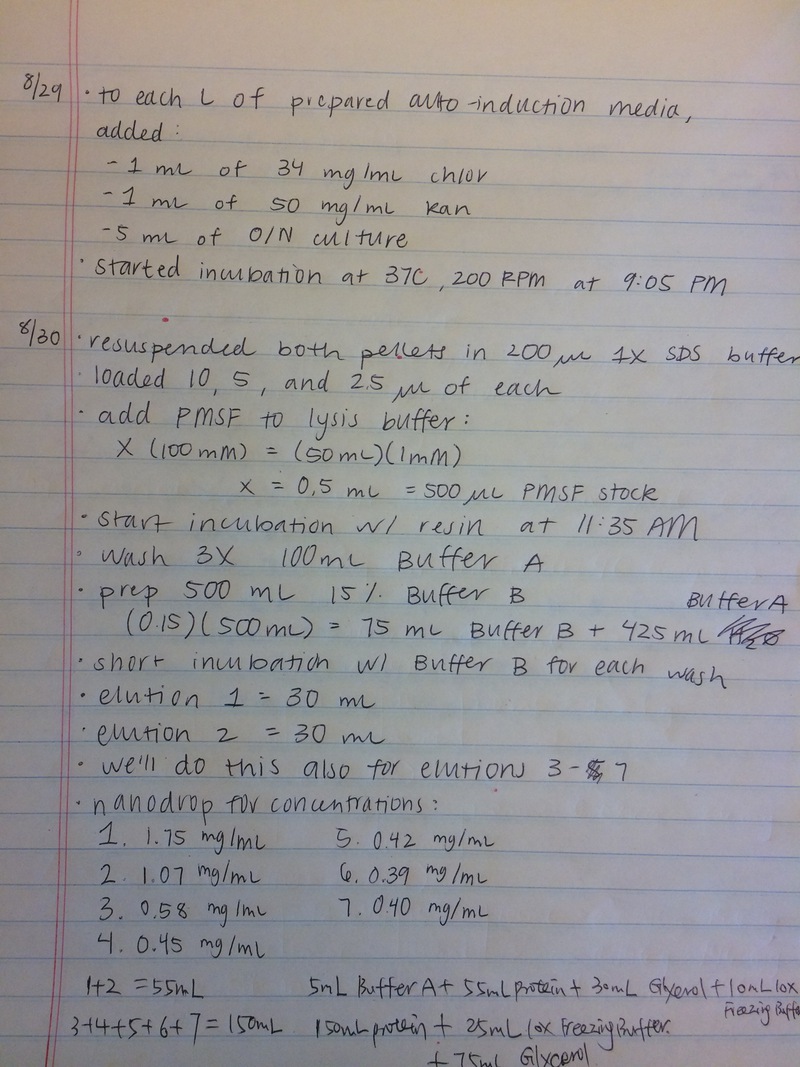 8/29 · to each L of prepared auto-induction media,
added:
- 1 mL of 34 mg/mL chlor
- 1 mL of 50 mg/mL kan
- 5 mL of O/N culture
· started incubation at 37C, 200 RPM at 9:05 PM
8/30 · resuspended both pellets in 200 μL 1X SDS buffer
· loaded 10, 5, and 2.5 μL of each
· add PMSF to lysis buffer:
X (100 mM) = (50 mL)(1 mM)
X = 0.5 mL = 500 μL PMSF stock
· start incubation w/ resin at 11:35 AM
· wash 3X 100 mL Buffer A
· prep 500 mL 15% Buffer B
(0.15)(500 mL) = 75 mL Buffer B + 425 mL Buffer A
· short incubation w/ Buffer B for each wash
· elution 1 = 30 mL
· elution 2 = 30 mL
· we'll do this also for elutions 3 - 7
· nanodrop for concentrations:
1. 1.75 mg/mL 5. 0.42 mg/mL
2. 1.07 mg/mL 6. 0.39 mg/mL
3. 0.58 mg/mL 7. 0.40 mg/mL
4. 0.45 mg/mL
1+2 = 55mL 5mL Buffer A + 55mL protein + 30mL Glycerol + 10mL 10x Freezing Buffe
3+4+5+6+7 = 150mL 150mL protein + 25mL 10x Freezing Buffer.
+ 75mL Glycerol